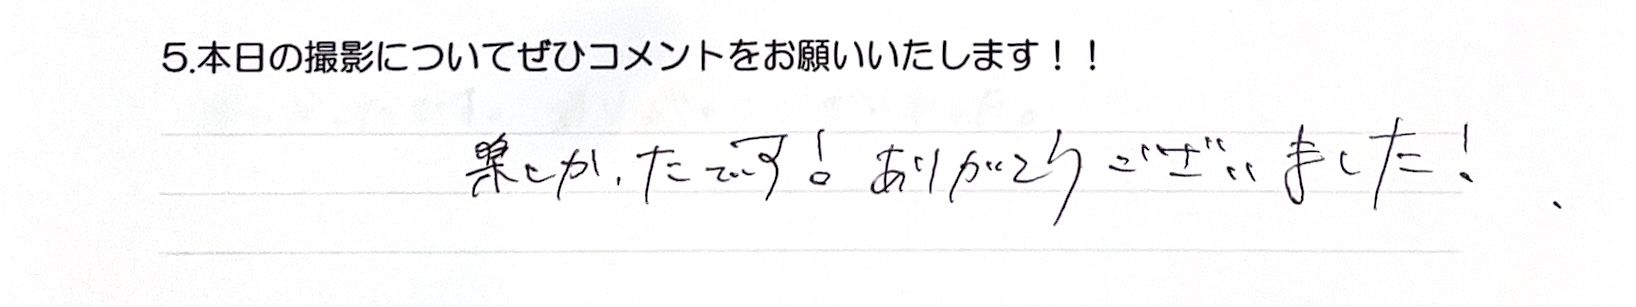 5.本日の撮影についてぜひコメントをお願いいたします!!
楽しかったです! ありがとうございました!